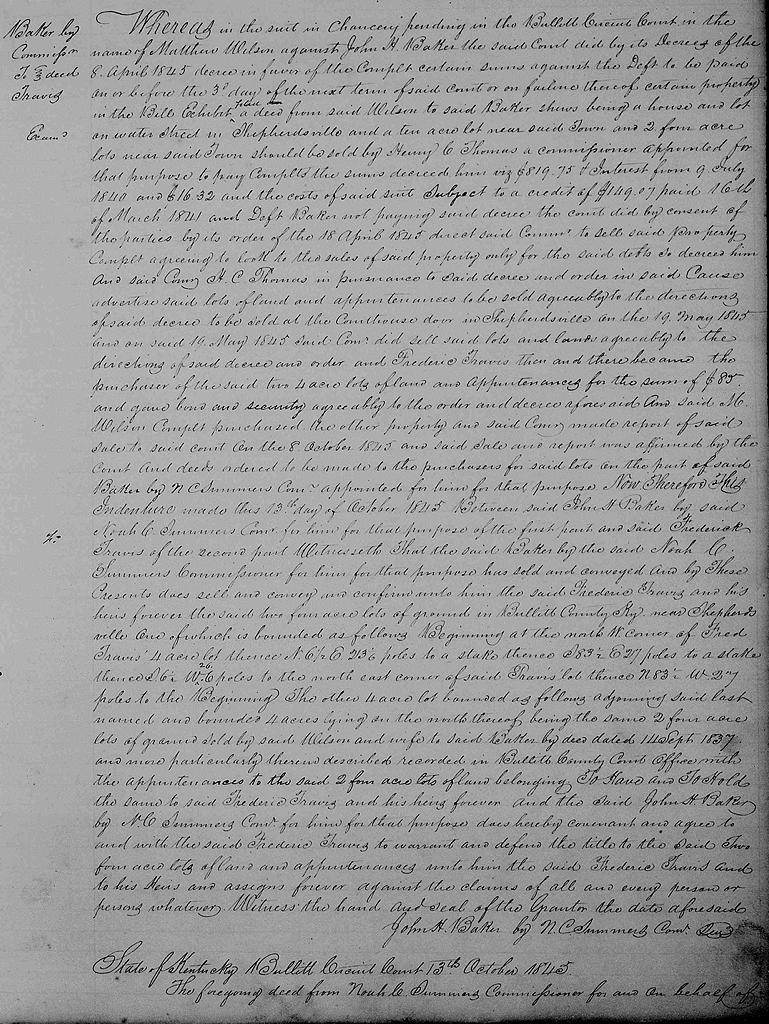 Baker by
Commissr
To } deed
Travis
Exam.d
Whereas in the suit in Chancery pending in the Bullitt Circuit Court in the
name of Matthew Wilson against John H. Baker the said Court did by its Decree of the
8. April 1845 decree in favor of the Complt certain sums against the Deft to be paid
on or before the 3d day of the next term of said Court or on failure thereof certain property
in the Bill Exhibit filed a deed from said Wilson to said Baker shews being a house and lot
on water Street in Shepherdsville and a ten acre lot near said Town and 2 four acre
lots near said Town should be sold by Henry C Thomas a commissioner appointed for
that purpose to pay Complts the sums decreed him viz $819.75 & Interest from 9 July
1840 and $16.32 and the costs of said suit Subject to a credit of $149.07 paid 16th
of March 1841 and Deft Baker not paying said decree the court did by consent of
the parties by its order of the 18 April 1845 direct said Comr. to sell said Property
Complt agreeing to look to the sales of said property only for the said debts so decreed him
And said Comr H. C. Thomas in pursuance to said decree and order in said Cause
advertise said lots of land and appurtenances to be sold agreeably to the directions
of said decree to be sold at the Courthouse door in Shepherdsville on the 19. May 1845
and on said 19. May 1845 said Comr. did sell said lots and lands agreeably to the
directions of said decree and order and Frederic Travis then and there became the
purchaser of the said two 4 acre lots of land and appurtenances for the sum of $85.
and gave bond and security agreeably to the order and decree aforesaid And said M.
Wilson Complt purchased the other property and said Comr made report of said
sale to said court on the 8. October 1845 and said sale and report was affirmed by the
Court And deeds ordered to be made to the purchasers for said lots on the part of said
Baker by N C Summers Comr. appointed for him for that purpose Now Therefore This
Indenture made this 13th day of October 1845 Between said John H Baker by said
Noah C. Summers Comr. for him for that purpose of the first part and said Frederick
Travis of the second part Witnesseth That the said Baker by the said Noah C.
Summers Commissioner for him for that purpose has sold and conveyed and by These
Presents does sell and convey and confirm unto him the said Frederic Travis and his
heirs forever the said two four acre lots of ground in Bullitt County Ky. near Shepherds
ville One of which is bounded as follows Beginning at the north W corner of Fred
Travis' 4 acre lot thence N 6½ E 23⅔ poles to a stake thence S 83½ E 27 poles to a stake
thence S. 6½ W. 26 poles to the north east corner of said Travis' lot thence N 83½ W 27
poles to the Beginning The other 4 acre lot bounded as follows adjoining said last
named and bounded 4 acres lying on the north thereof being the same 2 four acre
lots of ground sold by said Wilson and wife to said Baker by deed dated 14 Sept 1837
and more particularly therein described recorded in Bullitt County Court Office with
the appurtenances to the said 2 four acre lots of land belonging To Have And To Hold
the same to said Frederic Travis and his heirs forever and the said John H Baker
by N. C Summers Comr. for him for that purpose does hereby covenant and agree to
and with the said Frederic Travis to warrant and defend the title to the said Two
four acre lots of land and appurtenances unto him the said Frederic Travis and
to his Heirs and assigns forever against the claims of all and every person or
persons whatever. Witness the hand and seal of the Grantor the date aforesaid
John H. Baker by N. C Summers Comr. Seal
State of Kentucky Bullitt Circuit Court 13th October 1845.
The foregoing deed from Noah C. Summers Commissioner for and on behalf of